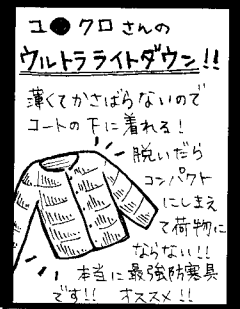 ユ●クロさんの
ウルトラライトダウン!!
薄くてかさばらないので
コートの下に着れる!
脱いだら
コンパクト
にしまえ
て荷物に
ならない!!
本当に最強防寒具
です!! オススメ!!